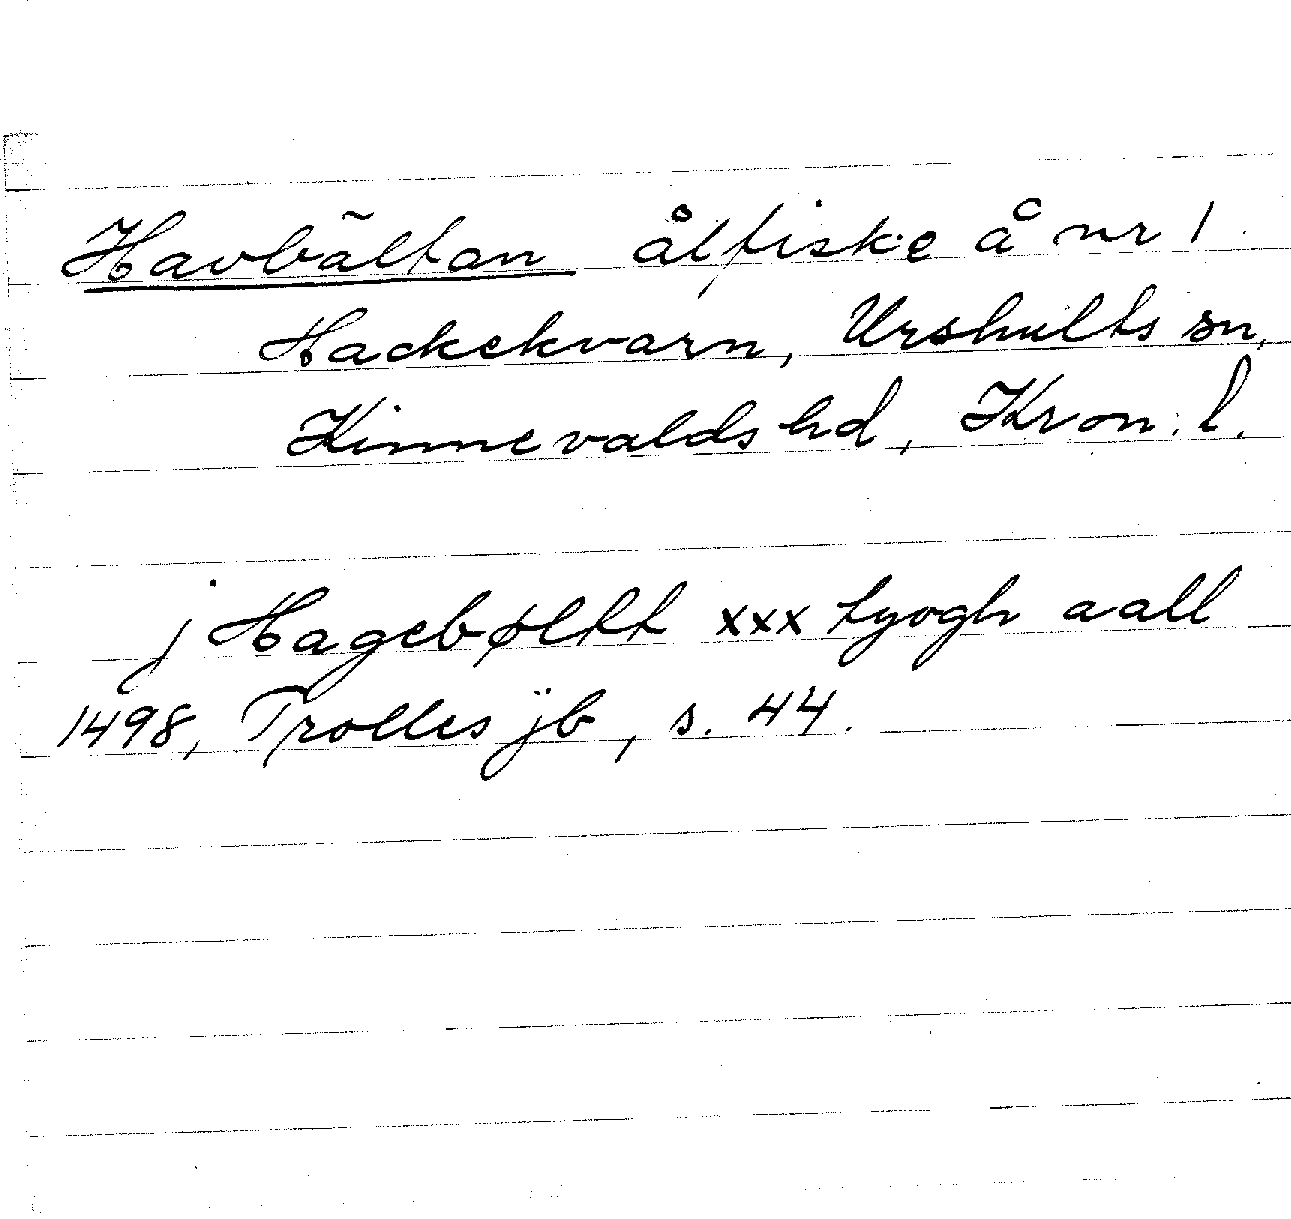 Havbältan ålfiske å nr 1
Hackekvarn, Urshults sn,
Kinnevalds hd, Kron. l.
j Hagebøltt xxx tyogh aall
1498, Trolles jb, s. 44.